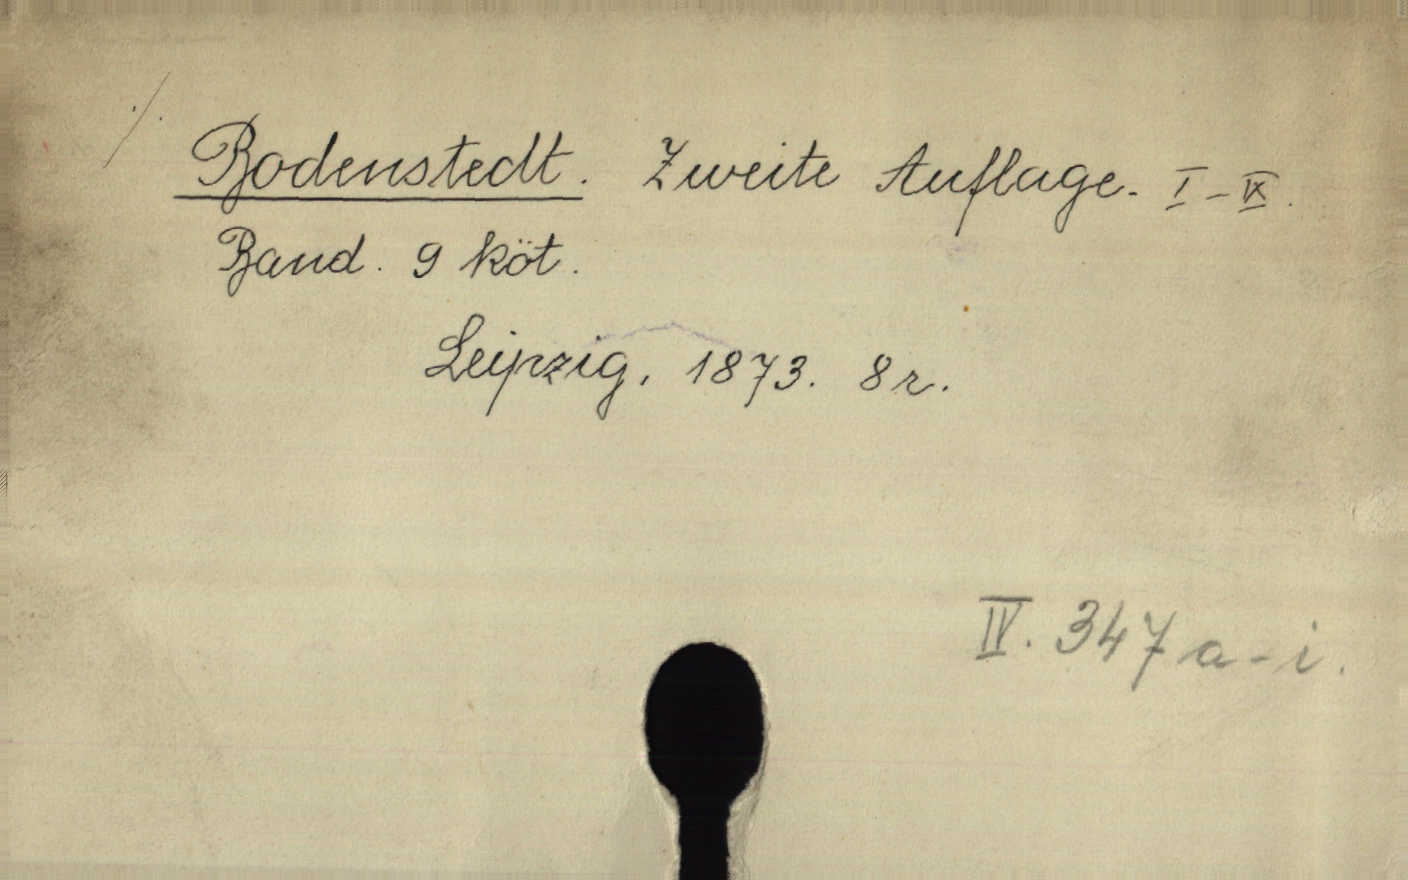 ·/· Bodenstedt. Zweite Auflage. I-IX.
Band. 9 köt.
Leipzig, 1873. 8 r.
IV. 347 a-i.